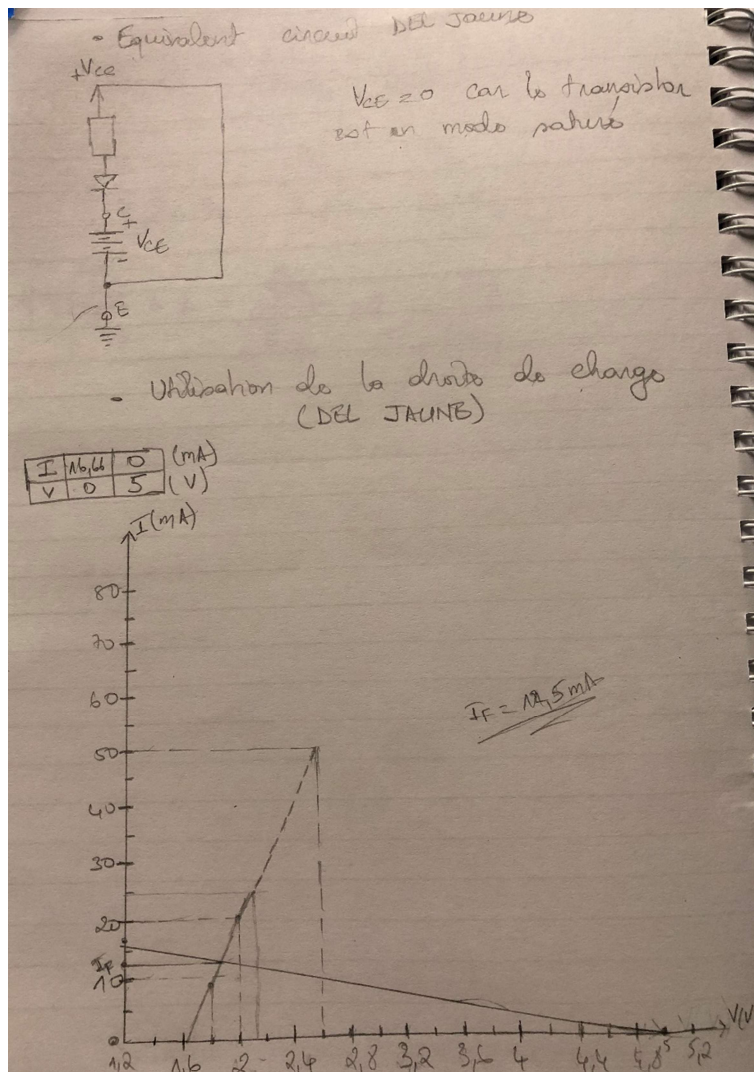 • Equivalent circuit DEL Jaune
+Vcc
VCE = 0 car le transistor
est en mode saturé
C
+
VCE
-
E
- Utilisation de la droite de charge
(DEL JAUNE)
I 16,66 0 (mA)
V 0 5 (V)
I(mA)
80
70
60
IF = 12,5mA
50
40
30
20
IF
10
0
1,2 1,6 2 2,4 2,8 3,2 3,6 4 4,4 4,8 5 5,2
V(V